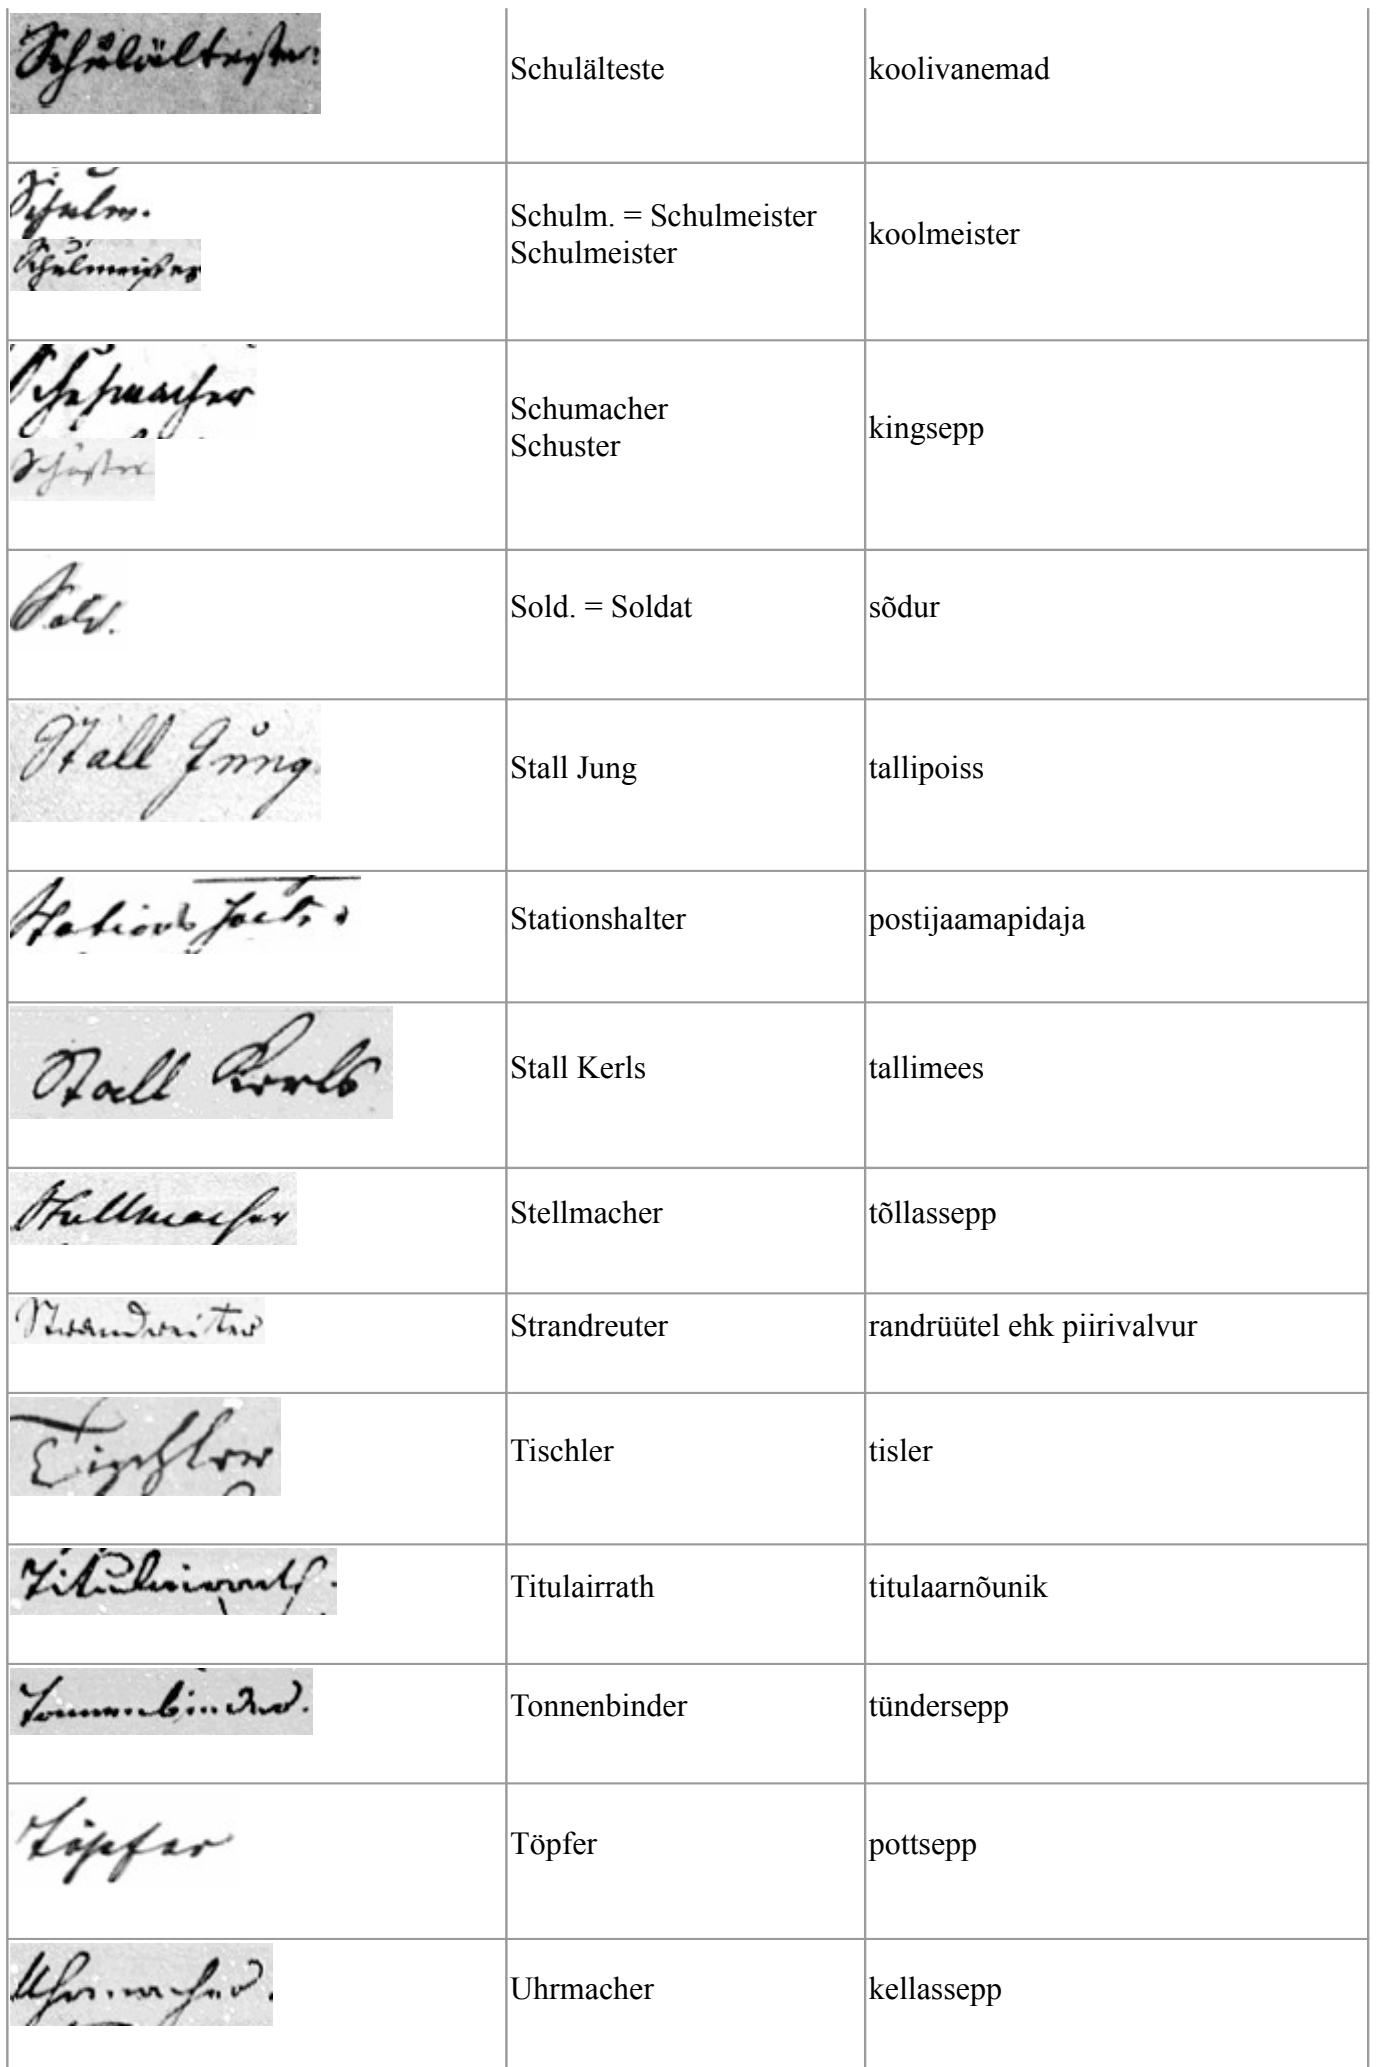 Schulälteste:
Schulälteste
koolivanemad
Schulm.
Schulmeister
Schulm. = Schulmeister
Schulmeister
koolmeister
Schuhmacher
Schuster
Schumacher
Schuster
kingsepp
Sold.
Sold. = Soldat
sõdur
Stall Jung
Stall Jung
tallipoiss
Stationshalter
postijaamapidaja
Stall Kerls
Stall Kerls
tallimees
Stellmacher
Stellmacher
tõllassepp
Strandreiter
Strandreuter
randrüütel ehk piirivalvur
Tischler
Tischler
tisler
Titulairrath.
Titulairrath
titulaarnõunik
Tonnenbinder.
Tonnenbinder
tündersepp
Töpfer
Töpfer
pottsepp
Uhrmacher.
Uhrmacher
kellassepp